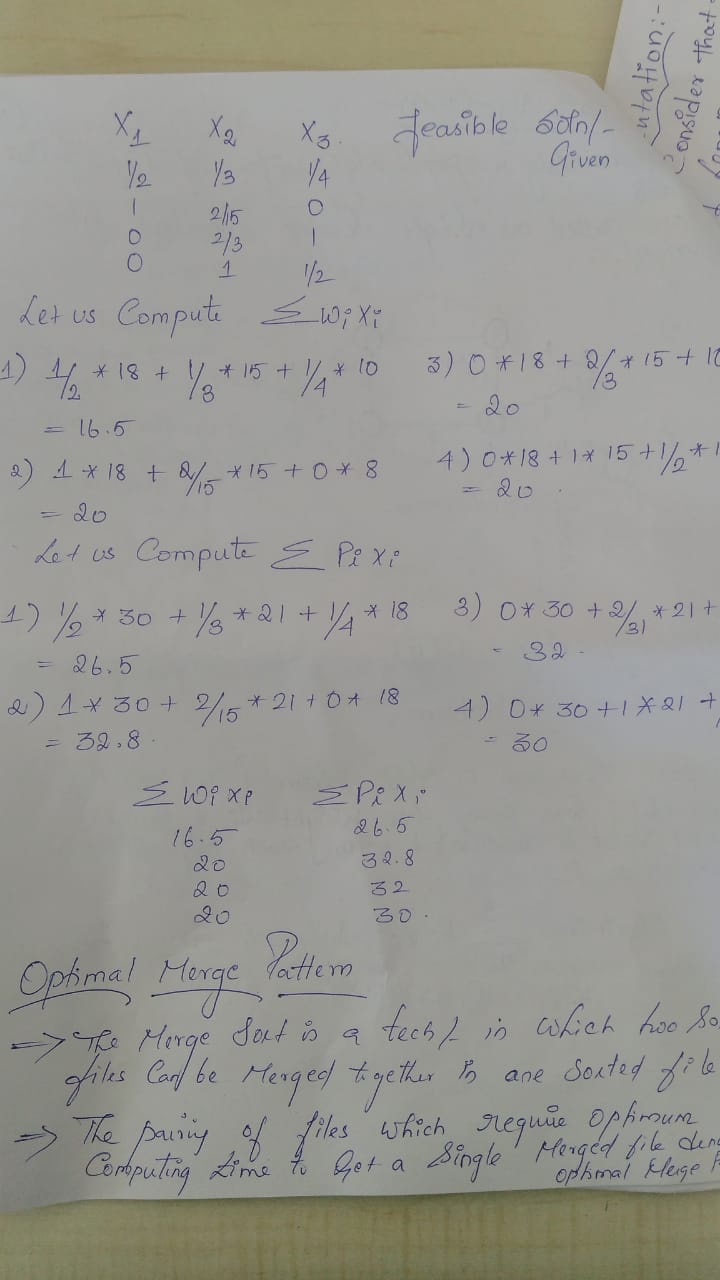 X1 X2 X3. feasible soln/-
Given
1/2 1/3 1/4
1 2/15 0
0 2/3 1
0 1 1/2
Let us Compute Σ wi xi
1) 1/2 * 18 + 1/3 * 15 + 1/4 * 10
= 16.5
2) 1 * 18 + 2/15 * 15 + 0 * 8
= 20
3) 0 * 18 + 2/3 * 15 + 10
= 20
4) 0*18 + 1* 15 + 1/2 * 1
= 20 .
Let us Compute Σ Pi xi
1) 1/2 * 30 + 1/3 * 21 + 1/4 * 18
= 26.5
2) 1 * 30 + 2/15 * 21 + 0 * 18
= 32.8.
3) 0* 30 + 2/31 * 21 +
= 32.
4) 0* 30 + 1 * 21 +
= 30
Σ wi xi Σ Pi xi
16.5 26.5
20 32.8
20 32
20 30.
Optimal Merge Pattern
=> The Merge Sort is a tech/- in which two So
files Can be Merged together in one Sorted file
=> The pairing of files which require Optimum
Computing time to Get a Single Merged file
Optimal Merge
ntation:-
Consider that